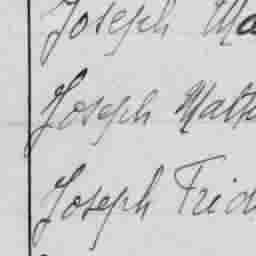 Joseph Ma
Joseph Math
Joseph Frid